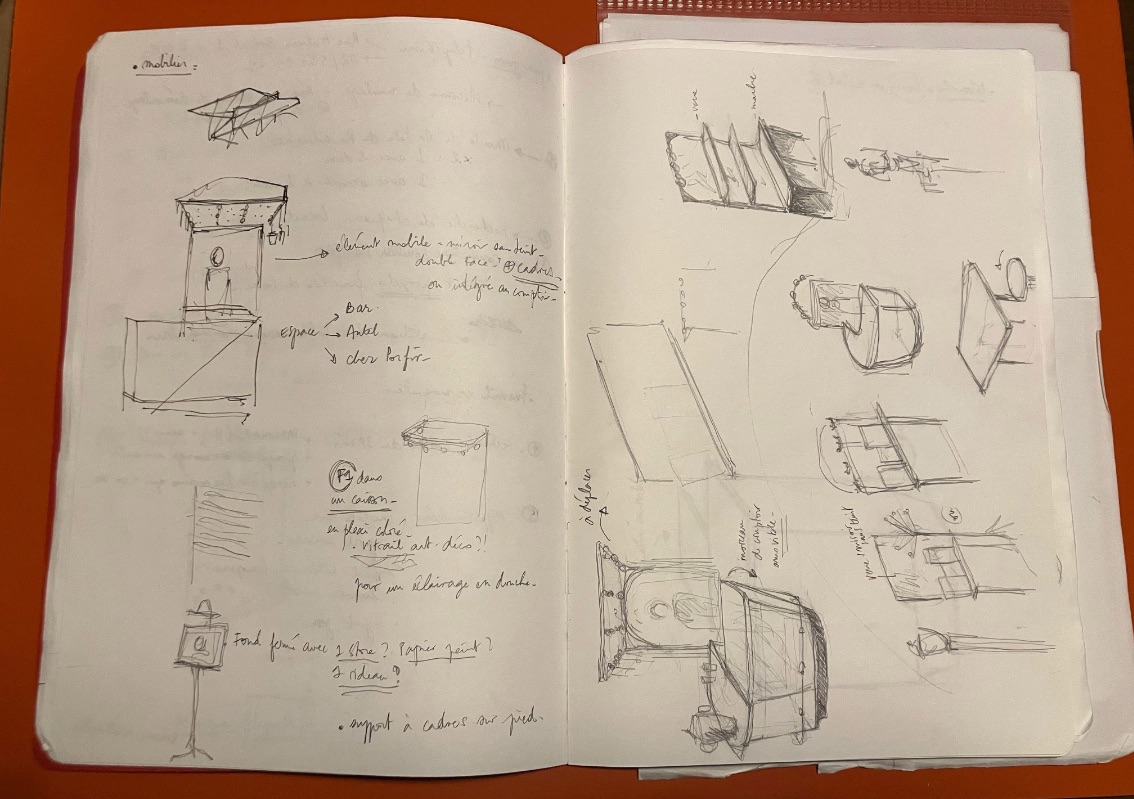 • mobilier =
élément mobile - miroir sans teint -
double face? ⊕ cadres -
ou intégré au comptoir -
Espace
Bar
Autel
chez Porfir -
F1 dans
un caisson -
en plexi coloré -
• vitrail art-déco?!
pour un éclairage en douche -
Fond fermé avec 1 store? Papier peint?
1 rideau?
• support à cadres sur pied -
marbre
à déplacer
morceau
de comptoir
amovible -
verre / miroir
sans teint